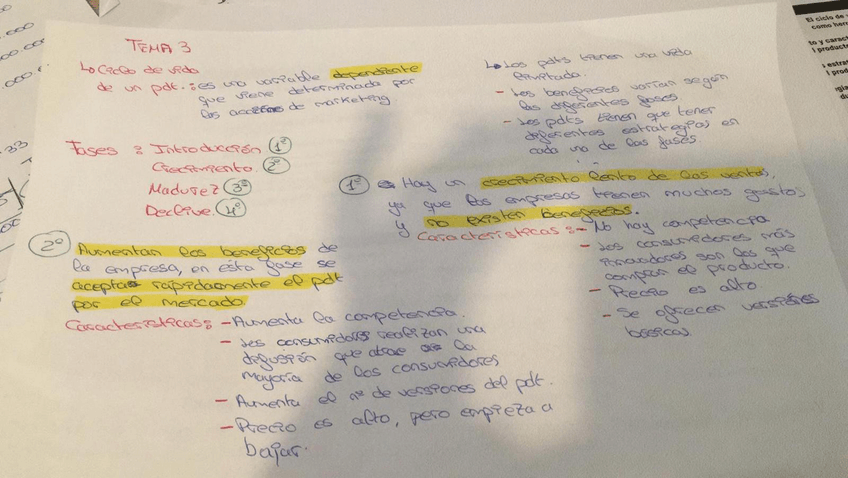 TEMA 3
↳ Ciclo de vida
de un pdt.: es una variable dependiente
que viene determinada por
las acciones de marketing
↳ Los pdts tienen una vida
limitada.
- Los beneficios varían según
las diferentes fases
- Los pdts tienen que tener
diferentes estrategias en
cada una de las fases
Fases: Introducción 1º
Crecimiento. 2º
Madurez 3º
Declive. 4º
1º Hay un crecimiento lento de las ventas,
ya que las empresas tienen muchos gastos
y no existen beneficios.
Características: - No hay competencia
- Los consumidores más
innovadores son los que
compran el producto.
- Precio es alto
- Se ofrecen versiones
básicas.
2º Aumentan los beneficios de
la empresa, en esta fase se
acepta rápidamente el pdt
por el mercado
Características: - Aumenta la competencia.
- Los consumidores realizan una
difusión que atrae la
mayoría de los consumidores
- Aumenta el nº de versiones del pdt.
- Precio es alto, pero empieza a
bajar.
El ciclo de
como her
to y caract
l product
estrat
l prod